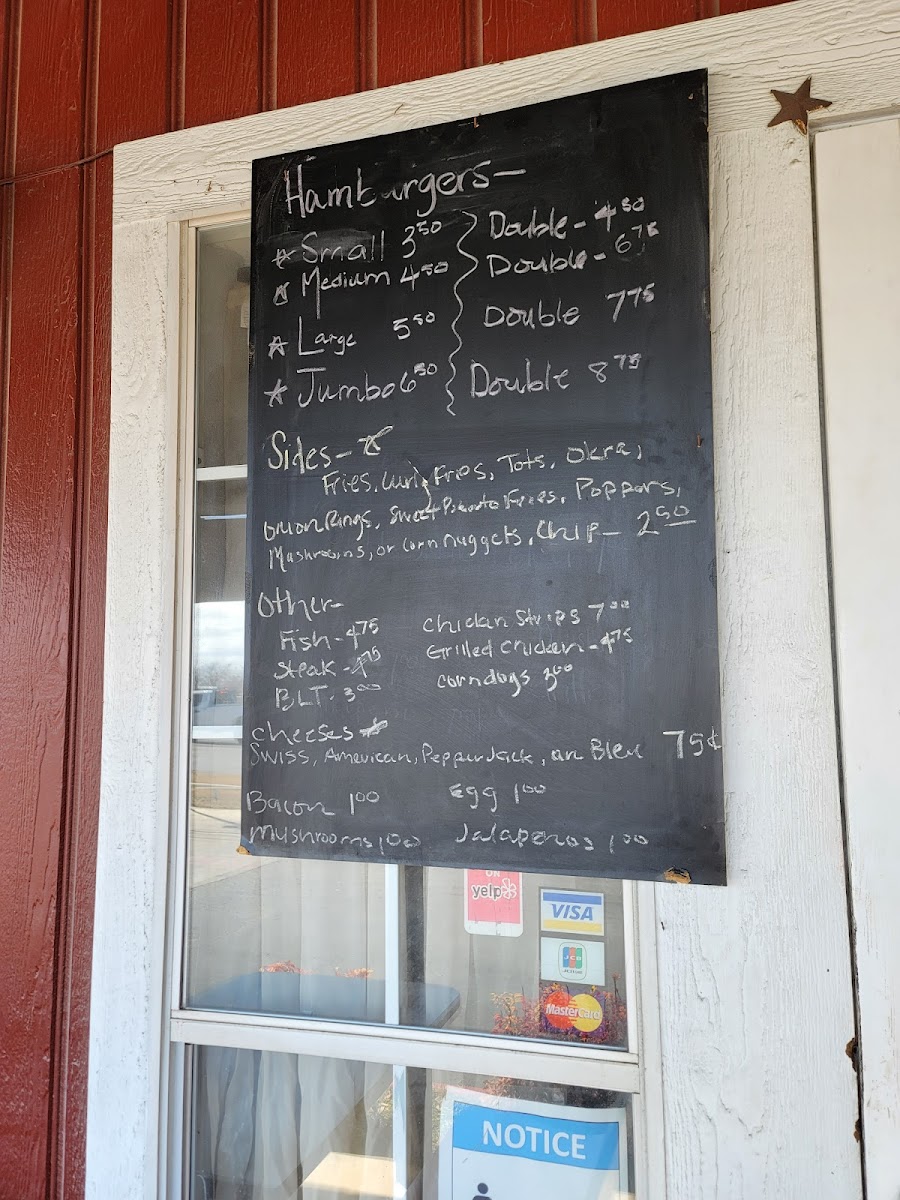 Hamburgers-
☆ Small 3⁵⁰ Double - 4⁵⁰
☆ Medium 4⁵⁰ Double - 6⁷⁵
☆ Large 5⁵⁰ Double 7⁷⁵
☆ Jumbo 6⁵⁰ Double 8⁷⁵
Sides-
Fries, Curly Fries, Tots, Okra,
Onion Rings, Sweet Potato Fries, Poppers,
Mushrooms, or Corn nuggets, Chip- 2⁵⁰
Other-
Fish - 4⁷⁵ Chicken Strips 7⁰⁰
Steak - 4⁷⁵ Grilled Chicken - 4⁷⁵
BLT - 3⁰⁰ corndogs 3⁰⁰
cheeses
Swiss, American, PepperJack, an Bleu 75¢
Bacon 1⁰⁰ Egg 1⁰⁰
Mushrooms 1⁰⁰ Jalapenos 1⁰⁰
ON
yelp
VISA
JCB
MasterCard
NOTICE